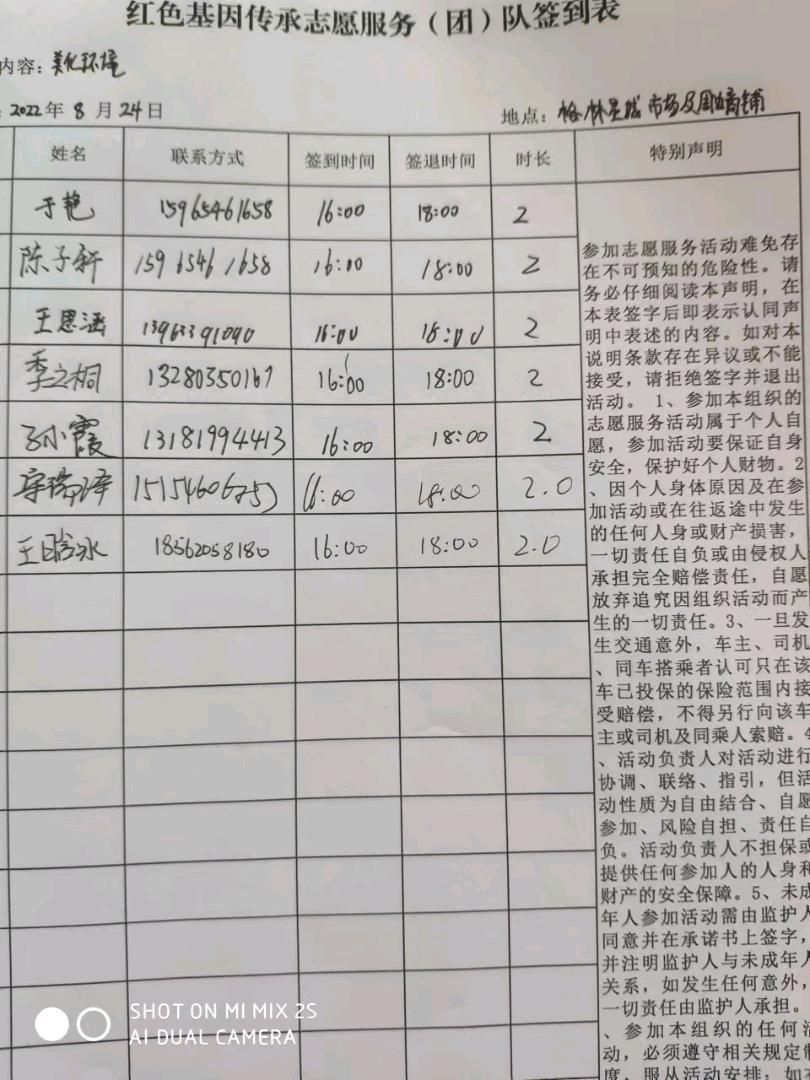 红色基因传承志愿服务（团）队签到表
内容：美化环境
：2022年8月24日 地点：格林星城市场及周边商铺
姓名 联系方式 签到时间 签退时间 时长 特别声明
于艳 15965461658 16:00 18:00 2
陈子轩 15965461658 16:00 18:00 2
王思涵 16:00 18:00 2
季之桐 13280350167 16:00 18:00 2
孙小霞 13181994413 16:00 18:00 2
16:00 18:00 2.0
王晗冰 18562058180 16:00 18:00 2.0
参加志愿服务活动难免存
在不可预知的危险性。请
务必仔细阅读本声明，在
本表签字后即表示认同声
明中表述的内容。如对本
说明条款存在异议或不能
接受，请拒绝签字并退出
活动。 1、参加本组织的
志愿服务活动属于个人自
愿，参加活动要保证自身
安全，保护好个人财物。2
、因个人身体原因及在参
加活动或在往返途中发生
的任何人身或财产损害，
一切责任自负或由侵权人
承担完全赔偿责任，自愿
放弃追究因组织活动而产
生的一切责任。3、一旦发
生交通意外，车主、司机
、同车搭乘者认可只在该
车已投保的保险范围内接
受赔偿，不得另行向该车
主或司机及同乘人索赔。4
、活动负责人对活动进行
协调、联络、指引，但活
动性质为自由结合、自愿
参加、风险自担、责任自
负。活动负责人不担保或
提供任何参加人的人身和
财产的安全保障。5、未成
年人参加活动需由监护人
同意并在承诺书上签字，
并注明监护人与未成年人
关系，如发生任何意外，
一切责任由监护人承担。
、参加本组织的任何活
动，必须遵守相关规定制
度，服从活动安排；如
SHOT ON MI MIX 2S
AI DUAL CAMERA